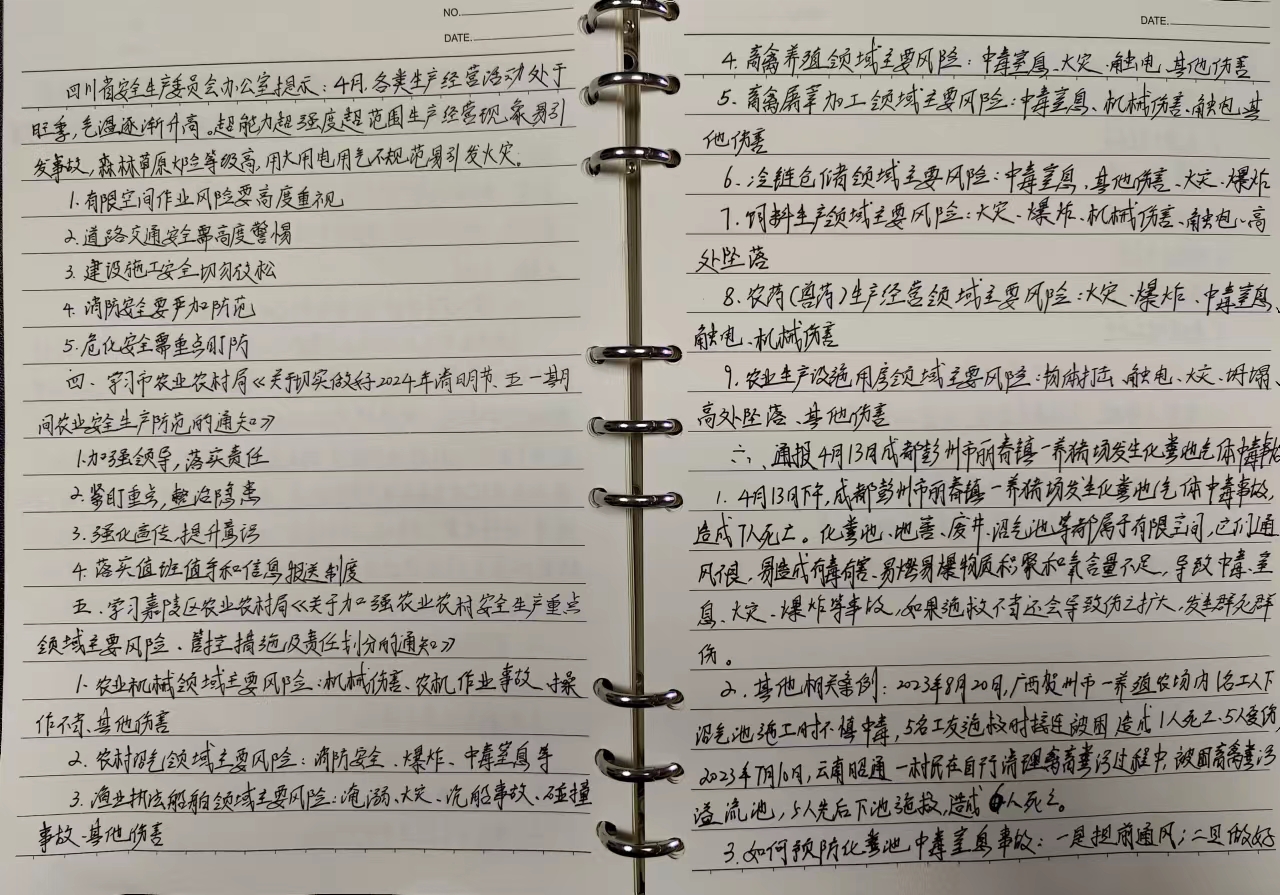 NO.
DATE.
四川省安全生产委员会办公室提示：4月,各类生产经营活动处于
旺季,气温逐渐升高。超能力超强度超范围生产经营现象易引
发事故,森林草原火险等级高,用火用电用气不规范易引发火灾。
1.有限空间作业风险要高度重视
2.道路交通安全需高度警惕
3.建设施工安全切勿放松
4.消防安全要严加防范
5.危化安全需重点盯防
四、学习市农业农村局《关于切实做好2024年清明节、五一期
间农业安全生产防范的通知》
1.加强领导,落实责任
2.紧盯重点,整治隐患
3.强化宣传,提升意识
4.落实值班值守和信息报送制度
五、学习嘉陵区农业农村局《关于加强农业农村安全生产重点
领域主要风险、管控措施及责任划分的通知》
1.农业机械领域主要风险:机械伤害、农机作业事故、操
作不当、其他伤害
2.农村沼气领域主要风险：消防安全、爆炸、中毒窒息等
3.渔业执法船舶领域主要风险:淹溺、火灾、沉船事故、碰撞
事故、其他伤害
DATE.
4.畜禽养殖领域主要风险：中毒窒息、火灾、触电、其他伤害
5.畜禽屠宰加工领域主要风险:中毒窒息、机械伤害、触电、其
他伤害
6.冷链仓储领域主要风险：中毒窒息,其他伤害、火灾、爆炸
7.饲料生产领域主要风险:火灾、爆炸、机械伤害、触电、高
处坠落
8.农药(兽药)生产经营领域主要风险:火灾、爆炸、中毒窒息、
触电、机械伤害
9.农业生产设施用房领域主要风险:物体打击、触电、火灾、坍塌、
高处坠落、其他伤害
六、通报4月13日成都彭州市丽春镇一养猪场发生化粪池气体中毒事故
1.4月13日下午,成都彭州市丽春镇一养猪场发生化粪池气体中毒事故,
造成7人死亡。化粪池、地窖、废井、沼气池等都属于有限空间,它们通
风不良,易造成有毒有害、易燃易爆物质积聚和氧含量不足,导致中毒、窒
息、火灾、爆炸等事故,如果施救不当还会导致伤亡扩大,发生群死群
伤。
2.其他相关案例：2023年8月20日,广西贺州市一养殖农场内1名工人下
沼气池施工时不慎中毒,5名工友施救时接连被困,造成1人死亡、5人受伤,
2023年7月10日,云南昭通一村民在自行清理禽畜粪污过程中,被困畜禽粪污
溢流池,5人先后下池施救,造成6人死亡。
3.如何预防化粪池中毒窒息事故：一是提前通风；二是做好